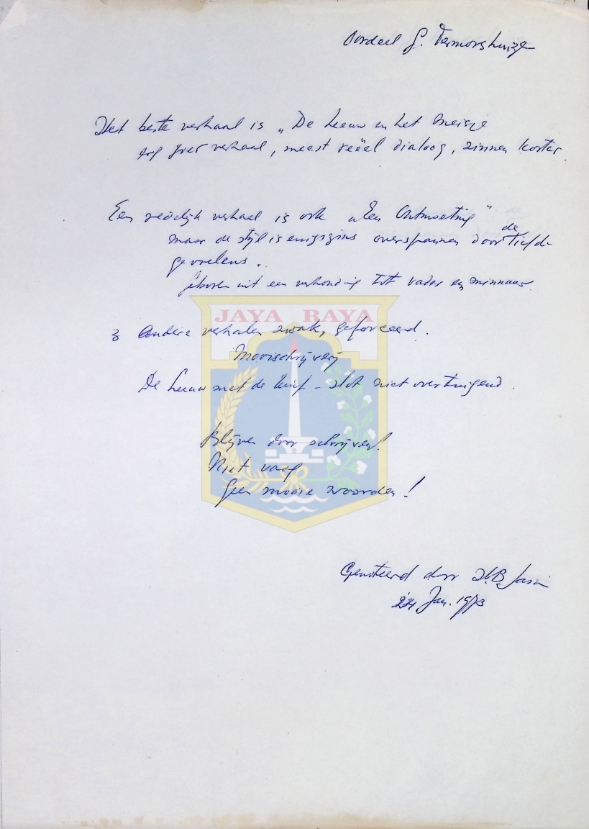 Oordeel G. Termorshuizen
Het beste verhaal is „De leeuw en het meisje
erg goed verhaal, meest reëel dialoog, zinnen korter.
Een redelijk verhaal is ook „Een Ontmoeting"
maar de stijl is enigszins overspannen door de liefde
gevoelens.
geboren uit een verhouding tot vader en minnaar.
3 andere verhalen zwak, geforceerd.
Mooischrijverij
JAYA RAYA
De leeuw met de - slot niet overtuigend.
Blijven door schrijven!
Niet vaag
Geen mooie woorden!
Genoteerd door H.B. Jassin
24 Jan. 1973